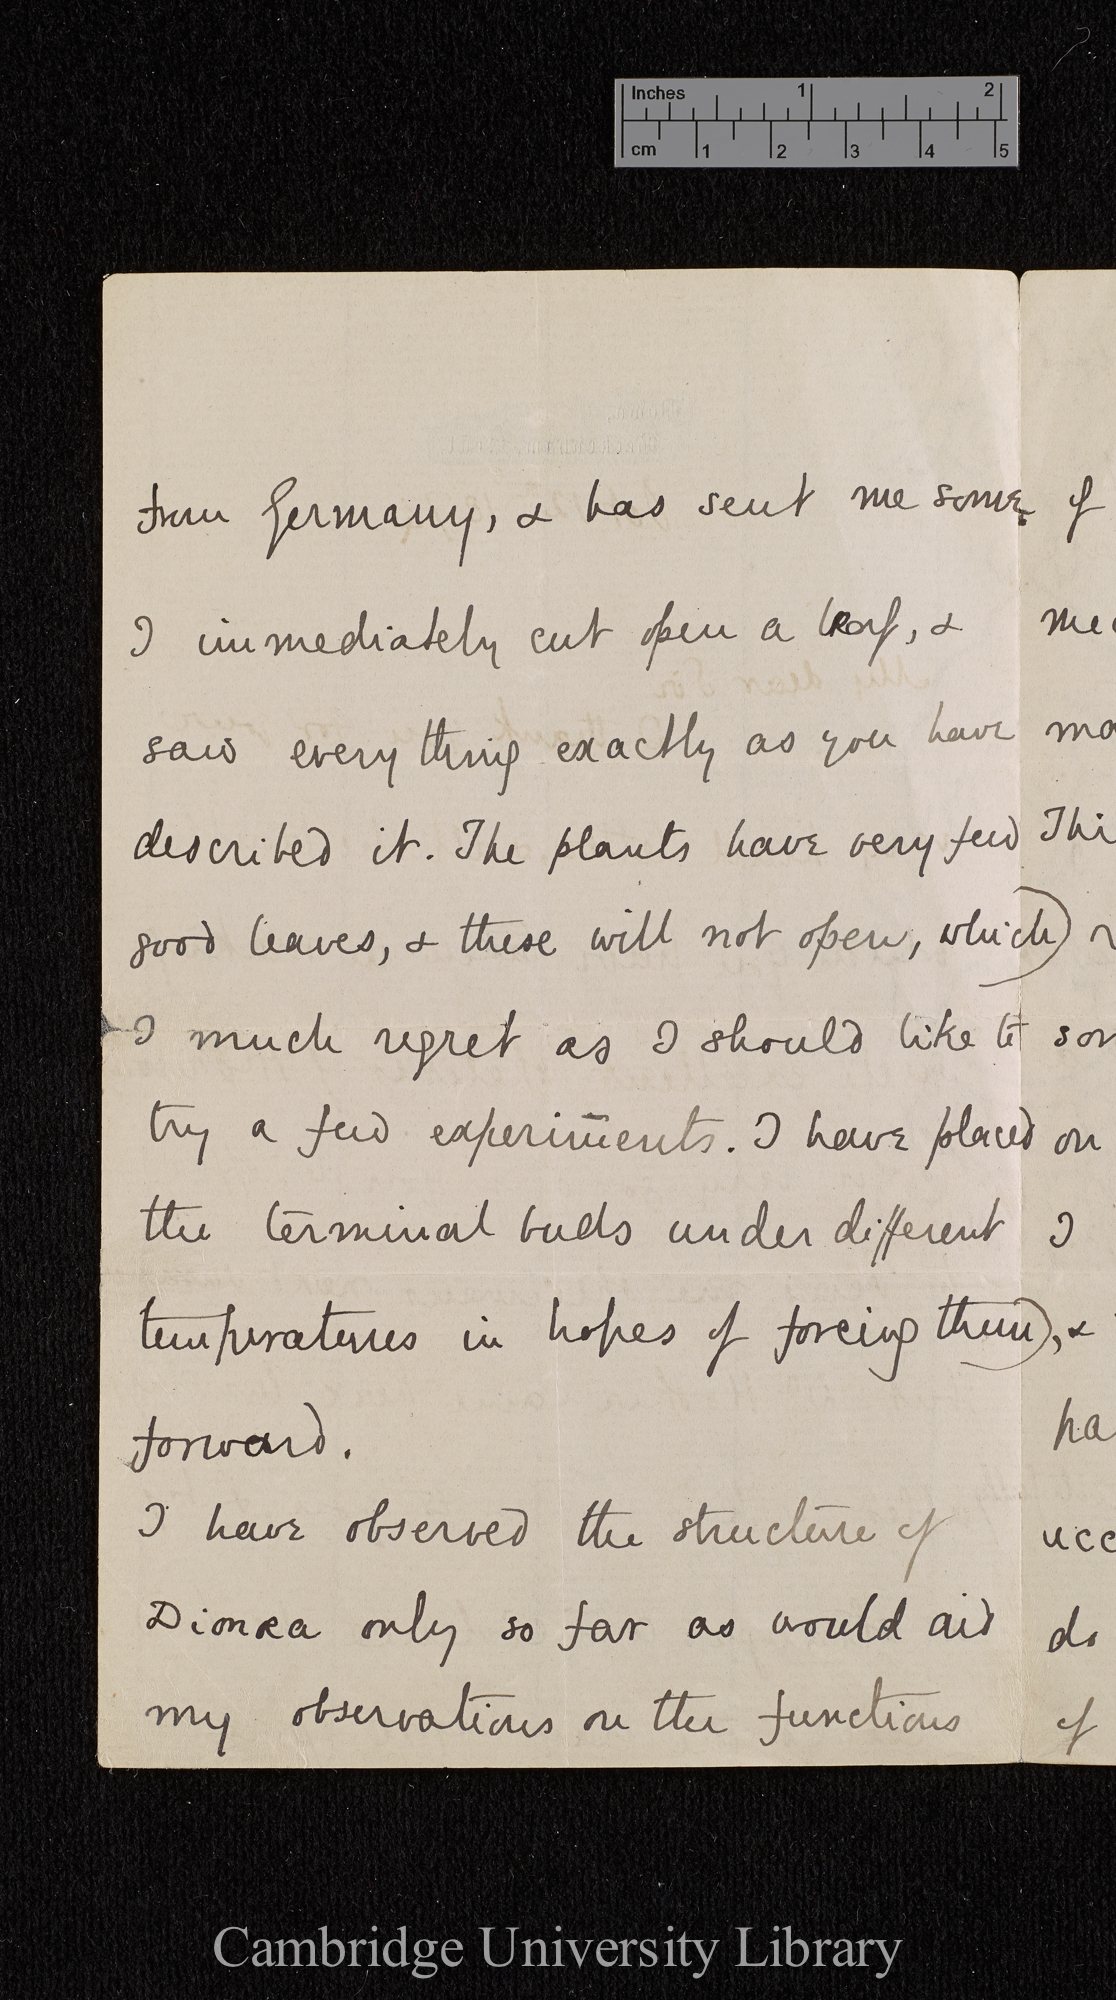 Inches 1 2
cm 1 2 3 4 5
from Germany, & has sent me some.
I immediately cut open a leaf, &
saw every thing exactly as you have
described it. The plants have very few
good leaves, & these will not open, which
I much regret as I should like to
try a few experiments. I have placed
the terminal buds under different
temperatures in hopes of forcing them
forward.
I have observed the structure of
Dionæa only so far as would aid
my observations on the functions
of
Thi
on
I
, &
ha
ucc
do
of
Cambridge University Library